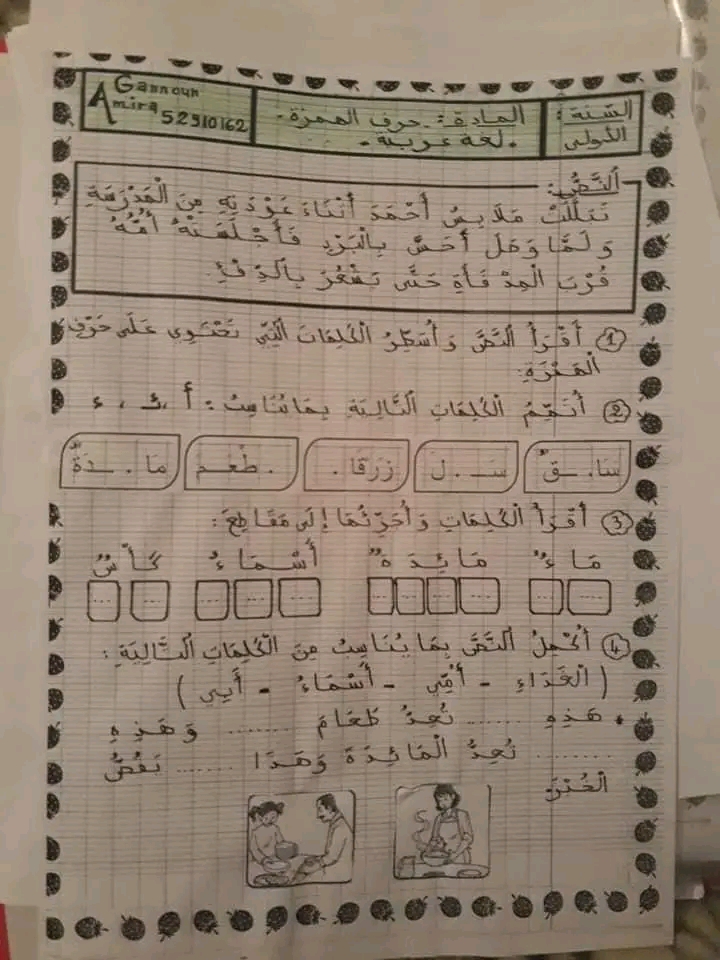 السّنة :
الأولى
المادة : حرف الهمزة -
لغة عربية .
Gannoun
Amira 52910162
النَّصُّ :
تَبَلَّلَتْ مَلَابِسُ أَحْمَدَ أَثْنَاءَ عَوْدَتِهِ مِنَ الْمَدْرَسَةِ
وَ لَمَّا وَصَلَ أَحَسَّ بِالْبَرْدِ فَأَجْلَسَتْهُ أُمُّهُ
قُرْبَ الْمِدْفَأَةِ حَتَّى يَشْعُرَ بِالدِّفْءِ.
1 أَقْرَأُ النَّصَّ وَ أُسَطِّرُ الْكَلِمَاتِ الَّتِي تَحْتَوِي عَلَى حَرْفِ
الْهَمْزَةِ:
2 أُتَمِّمُ الْكَلِمَاتِ التَّالِيَةِ بِمَا يُنَاسِبُ : أ ، ئـ ، ء
سَا . ـقٌ سَـ . ـلَ زَرْقَا . . طْعَـم مَا . ـدَةٌ
3 أَقْرَأُ الْكَلِمَاتِ وَ أُجَزِّئُهَا إِلَى مَقَاطِعَ :
مَاءٌ مَائِدَةٌ أَسْمَاءُ كَأْسٌ
4 أُكْمِلُ النَّصَّ بِمَا يُنَاسِبُ مِنَ الْكَلِمَاتِ التَّالِيَةِ :
( الْغَدَاءِ - أُمِّي - أَسْمَاءُ - أَبِي )
. هَذِهِ ....... تُعِدُّ طَعَامَ ........ وَ هَذِهِ
......... تُعِدُّ الْمَائِدَةَ وَ هَذَا ....... يَقُصُّ
الْخُبْزَ.